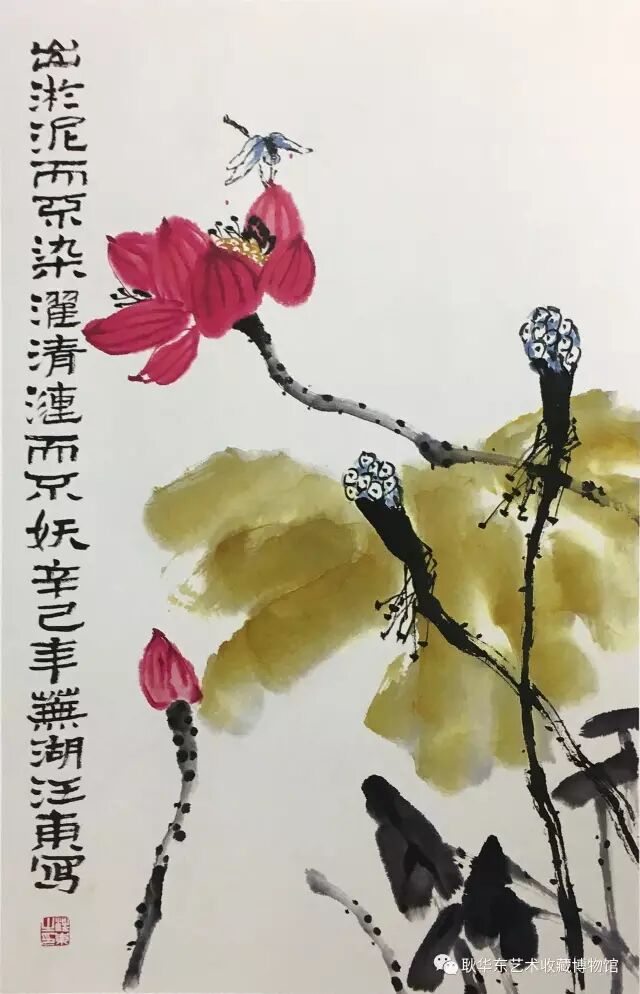 出淤泥而不染濯清漣而不妖辛巳年蕪湖汪東寫
耿华东艺术收藏博物馆